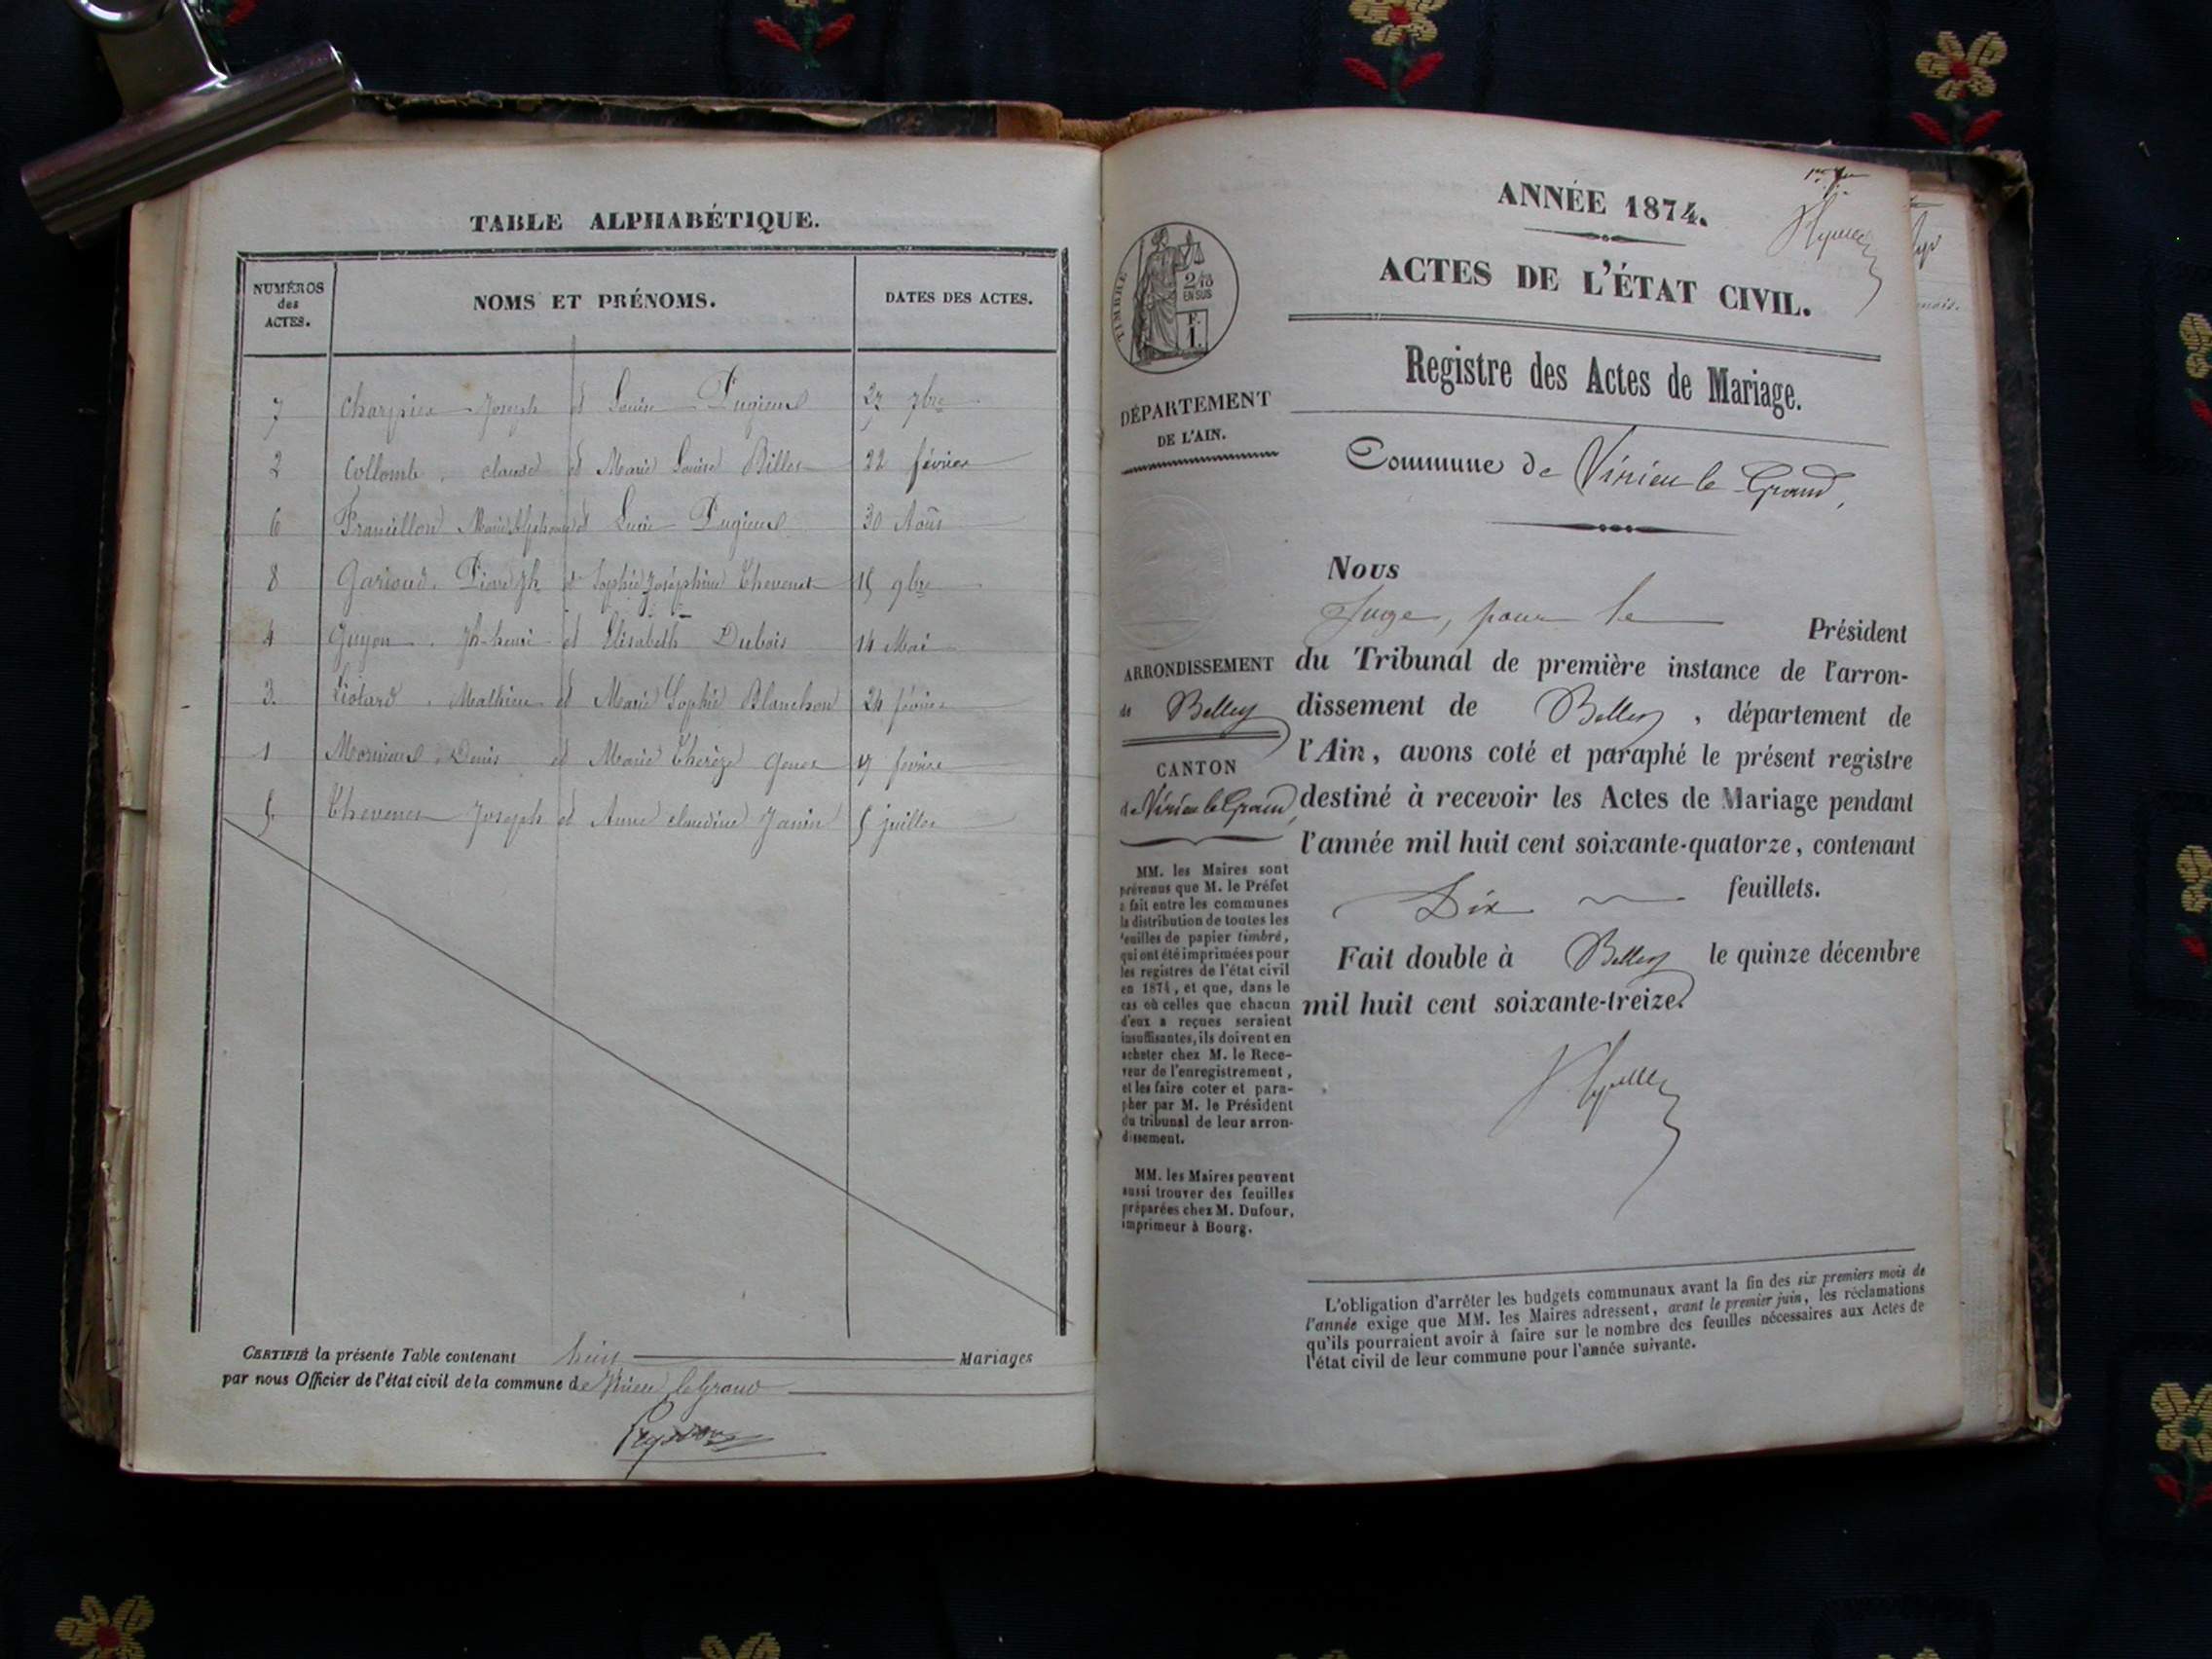 TABLE ALPHABÉTIQUE.
NUMÉROS des ACTES.
NOMS ET PRÉNOMS.
DATES DES ACTES.
7 Charpier Joseph et Louise Pugieux 27 7bre
2 Collomb, claude et Marie Louise Billet 22 février
6 Francillon Marie Alphonse et Lucie Pugieux 30 Août
8 Garioud, Pierre Jh et Sophie Joséphine Chevenet 15 9bre
4 Guyon, Jh henri et Elisabeth Dubois 14 Mai
3. Liotard, Mathieu et Marie Sophie Blanchon 24 février
1 Denis et Marie Thérèze 17 février
5. Joseph et Anne claudine Janin 5 juillet
CERTIFIÉ la présente Table contenant huit Mariages
par nous Officier de l'état civil de la commune de Virieu le Grand
ANNÉE 1874.
ACTES DE L'ÉTAT CIVIL.
Registre des Actes de Mariage.
TIMBRE
2/10
EN SUS
DÉPARTEMENT
DE L'AIN.
Commune de Virieu le Grand,
Nous
Juge, pour le Président
ARRONDISSEMENT
de Belley
CANTON
de Virieu le Grand,
du Tribunal de première instance de l'arron-
dissement de Belley, département de
l'Ain, avons coté et paraphé le présent registre
destiné à recevoir les Actes de Mariage pendant
l'année mil huit cent soixante-quatorze, contenant
Dix feuillets.
Fait double à Belley le quinze décembre
mil huit cent soixante-treize.
MM. les Maires sont
prévenus que M. le Préfet
a fait entre les communes
la distribution de toutes les
feuilles de papier timbré,
qui ont été imprimées pour
les registres de l'état civil
en 1874, et que, dans le
cas où celles que chacun
d'eux a reçues seraient
insuffisantes, ils doivent en
acheter chez M. le Rece-
veur de l'enregistrement,
et les faire coter et para-
pher par M. le Président
du tribunal de leur arron-
dissement.
MM. les Maires peuvent
aussi trouver des feuilles
préparées chez M. Dufour,
imprimeur à Bourg.
L'obligation d'arrêter les budgets communaux avant la fin des six premiers mois de
l'année exige que MM. les Maires adressent, avant le premier juin, les réclamations
qu'ils pourraient avoir à faire sur le nombre des feuilles nécessaires aux Actes de
l'état civil de leur commune pour l'année suivante.